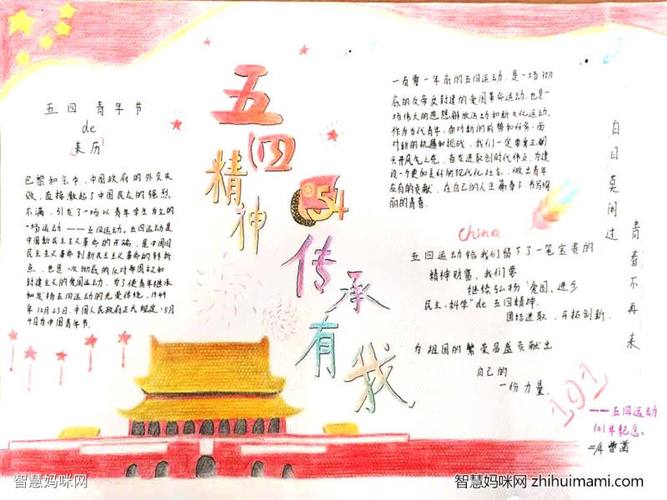 五四青年节
de
来历
巴黎和会中，中国政府的外交失
败，直接触起了中国民众的强烈
不满，引发了一场以青年学生为主的
一场运动——五四运动，五四运动是
中国新民主主义革命的开端，是中国旧
民主主义革命到新民主主义革命的转折
点，也是一次彻底的反对帝国主义和
封建主义的爱国运动。为了使青年继承
和发扬五四运动的光荣传统，1949
年12月23日，中国人民政府正式规定，5月
4日为中国青年节。
五
四
精
神
54
传
承
有
我
一百零一年前的五四运动，是一场彻
底的反帝反封建的爱国革命运动，也是一
场伟大的思想解放运动和新文化运动。
作为当代青年，面对新的形势和任务，面
对新的机遇和挑战，我们一定要
有的贡献，在自己的人生画卷上书写绚
丽的青春。
China
五四运动给我们留下了一笔宝贵的
精神财富，我们要
继续弘扬“爱国、进步
民主、科学”de五四精神。
团结进取，开拓创新。
为祖国的繁荣昌盛贡献出
自己的
一份力量。
白日莫闲过
青春不再来
191
——五四运动
101年纪念。
智慧妈咪网
智慧妈咪网 zhihuimami.com